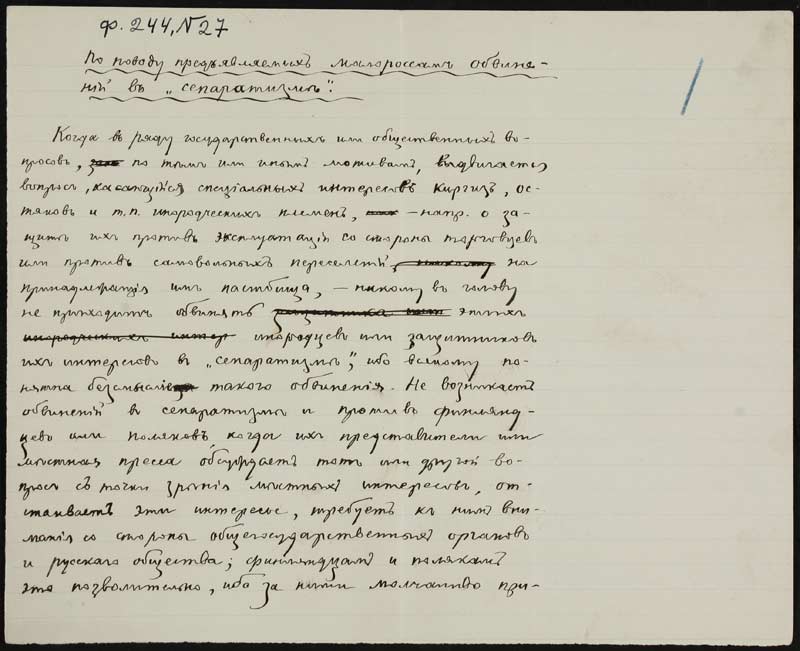 ф. 244, № 27
По поводу предъявляемыхъ малороссамъ обвине-
ній въ „сепаратизмѣ“.
Когда въ ряду государственныхъ или общественныхъ во-
просовъ, по тѣмъ или инымъ мотивамъ, выдвигается
вопросъ, касающійся спеціальныхъ интересовъ киргиз, ос-
тяковъ и т.п. инородческихъ племенъ, — напр. о за-
щитѣ ихъ противъ эксплуатаціи со стороны торговцевъ
или противъ самовольныхъ переселеній на
принадлежащія имъ пастбища, — никому въ голову
не приходитъ обвинять этихъ
инородцевъ или защитниковъ
ихъ интересовъ въ „сепаратизмѣ“, ибо всякому по-
нятна безсмысліе такого обвиненія. Не возникаетъ
обвиненій въ сепаратизмѣ и противъ финлянд-
цевъ или поляковъ, когда ихъ представители или
мѣстная пресса обсуждаетъ тотъ или другой во-
просъ съ точки зрѣнія мѣстныхъ интересовъ, от-
стаиваетъ эти интересы, требуетъ къ нимъ вни-
манія со стороны общегосударственныхъ органовъ
и русскаго общества; финляндцамъ и полякамъ
это позволительно, ибо за ними молчаливо при-